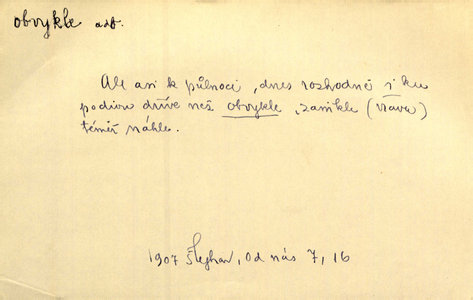 obvykle adv.
Ale asi k půlnoci, dnes rozhodně i ku
podivu dříve než obvykle, zanikla (vřava)
téměř náhle.
1907 Šlejhar, Od nás 7, 16